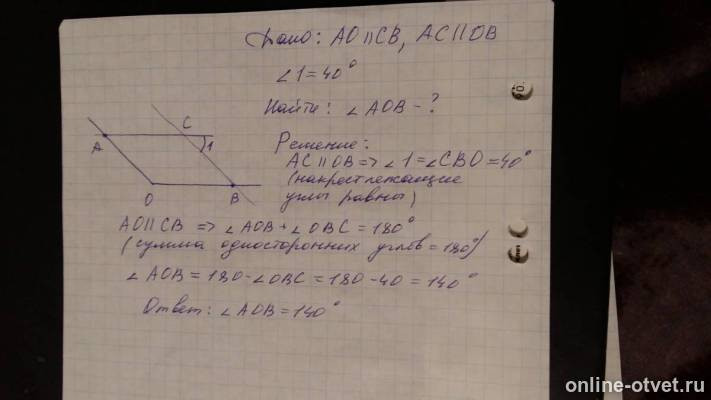 Дано: AO||CB, AC||OB
∠1=40°
Найти: ∠AOB-?
Решение:
AC||OB => ∠1=∠CBO=40°
(накрестлежащие
углы равны)
A
C
1
O
B
AO||CB => ∠AOB+∠OBC=180°
(сумма односторонних углов=180°)
∠AOB=180-∠OBC=180-40=140°
Ответ: ∠AOB=140°
online-otvet.ru